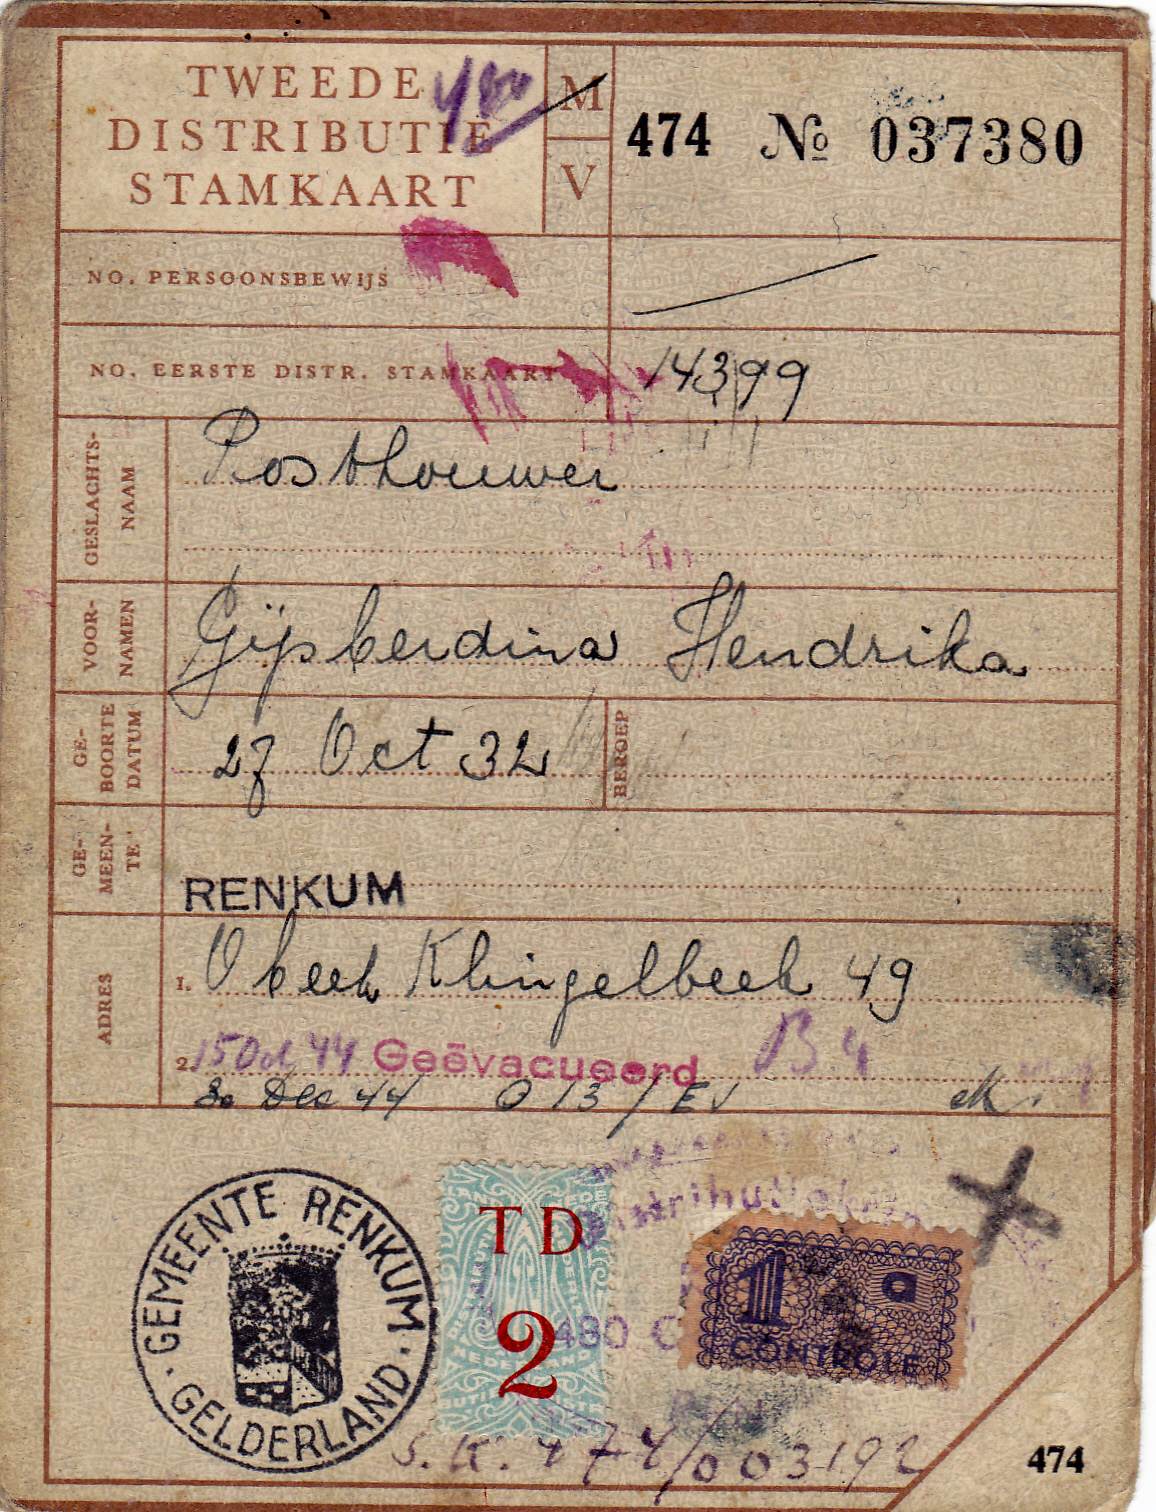 TWEEDE
DISTRIBUTIE
STAMKAART
480
M
V
474 No 037380
NO. PERSOONSBEWIJS
NO. EERSTE DISTR. STAMKAART
14399
GESLACHTS-
NAAM
Posthouwer
VOOR-
NAMEN
Gijsberdina Hendrika
GE-
BOORTE
DATUM
27 Oct 32
BEROEP
GE-
MEEN-
TE
RENKUM
ADRES
1. Obeek Klingelbeek 49
2. 15 Oct 44 Geëvacueerd B 4
30 Dec 44 O 13 / EV
GEMEENTE RENKUM
GELDERLAND
T D
2
Distributiekring
480
1 a
CONTRÔLE
S.K. 474/003192
474